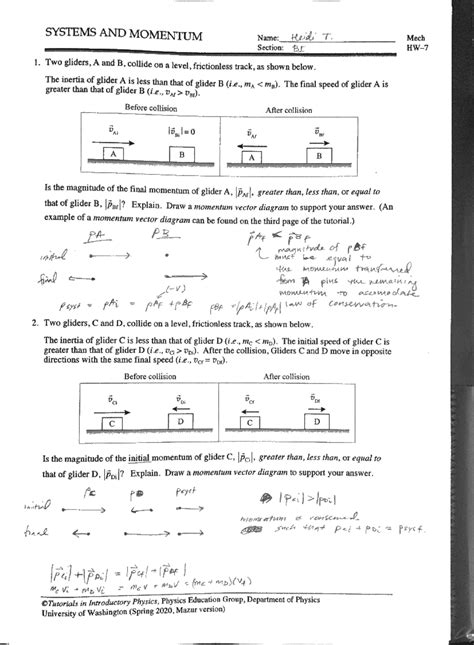 SYSTEMS AND MOMENTUM
Name: Heidi T.
Section: BI
Mech
HW–7
1. Two gliders, A and B, collide on a level, frictionless track, as shown below.
The inertia of glider A is less than that of glider B (i.e., m_A < m_B). The final speed of glider A is
greater than that of glider B (i.e., v_Af > v_Bf).
Before collision
After collision
v⃗_Ai
|v⃗_Bi| = 0
v⃗_Af
v⃗_Bf
A
B
A
B
Is the magnitude of the final momentum of glider A, |p⃗_Af|, greater than, less than, or equal to
that of glider B, |p⃗_Bf|? Explain. Draw a momentum vector diagram to support your answer. (An
example of a momentum vector diagram can be found on the third page of the tutorial.)
PA
PB
pAf < pBf
initial
magnitude of pBf
must be equal to
the momentum transferred
final
from A plus the remaining
(-v)
momentum to accomodate
Psyst = pAi = pAf + pBf
pBf = |pAi|+|pAf|
law of conservation.
2. Two gliders, C and D, collide on a level, frictionless track, as shown below.
The inertia of glider C is less than that of glider D (i.e., m_C < m_D). The initial speed of glider C is
greater than that of glider D (i.e., v_Ci > v_Di). After the collision, Gliders C and D move in opposite
directions with the same final speed (i.e., v_Cf = v_Df).
Before collision
After collision
v⃗_Ci
v⃗_Di
v⃗_Cf
v⃗_Df
C
D
C
D
Is the magnitude of the initial momentum of glider C, |p⃗_Ci|, greater than, less than, or equal to
that of glider D, |p⃗_Di|? Explain. Draw a momentum vector diagram to support your answer.
PC
PD
Psyst
|pci| > |pDi|
initial
momentum is conserved
final
such that pci + pDi = psysf.
|p⃗ci|+|p⃗Di| = |p⃗cf|+|p⃗Df|
= (mc + mD)(vf)
©Tutorials in Introductory Physics, Physics Education Group, Department of Physics
University of Washington (Spring 2020, Mazur version)